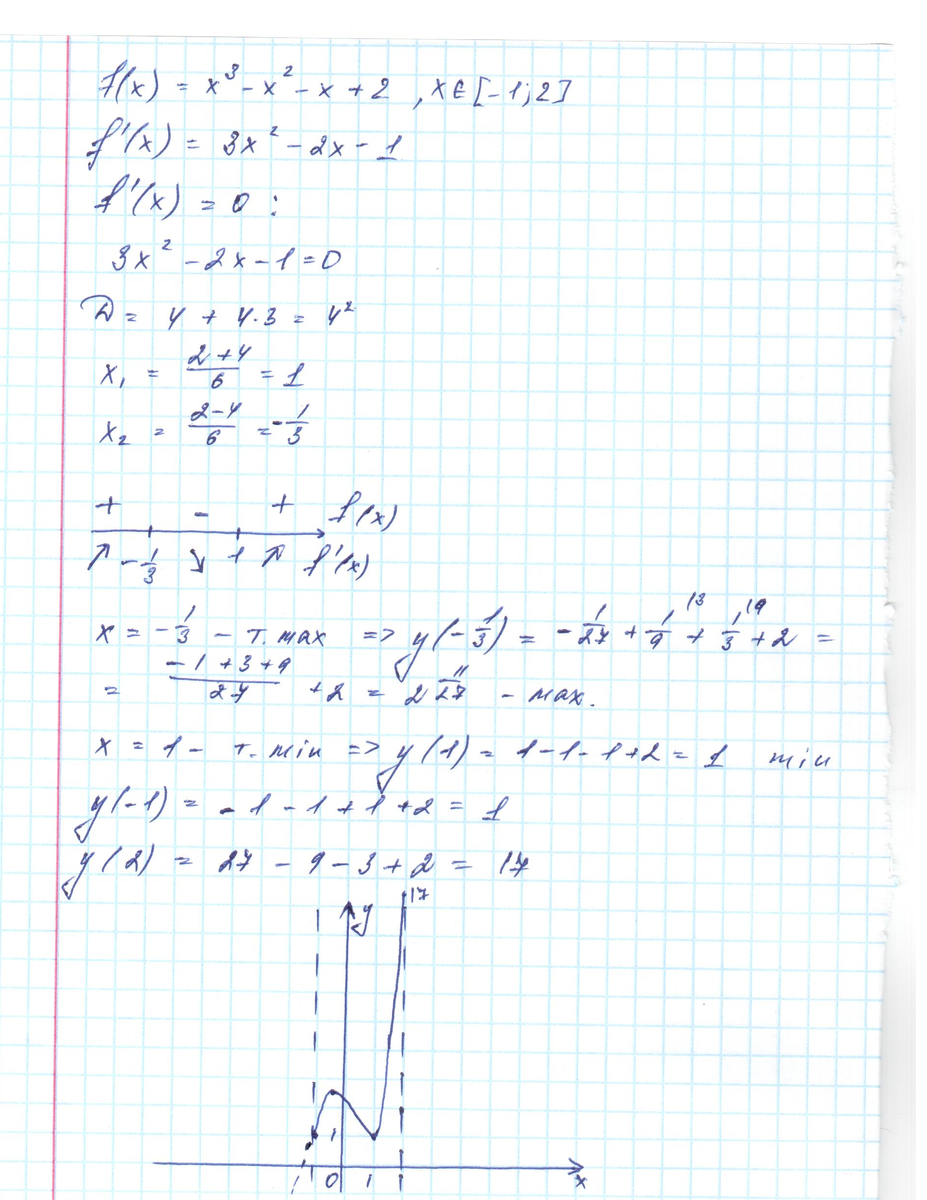 f(x) = x³ - x² - x + 2 , x ∈ [-1; 2]
f'(x) = 3x² - 2x - 1
f'(x) = 0 :
3x² - 2x - 1 = 0
D = 4 + 4·3 = 4²
x₁ = (2+4)/6 = 1
x₂ = (2-4)/6 = -1/3
+ - + f(x)
↗ -1/3 ↘ 1 ↗ f'(x)
x = -1/3 - т. max => y(-1/3) = -1/27 + 1/9 ⁽³ + 1/3 ⁽⁹ + 2 =
= (-1+3+9)/27 + 2 = 2 11/27 - max.
x = 1 - т. min => y(1) = 1-1-1+2 = 1 min
y(-1) = -1 - 1 + 1 + 2 = 1
y(2) = 27 - 9 - 3 + 2 = 17
y 17
1
0 1 x